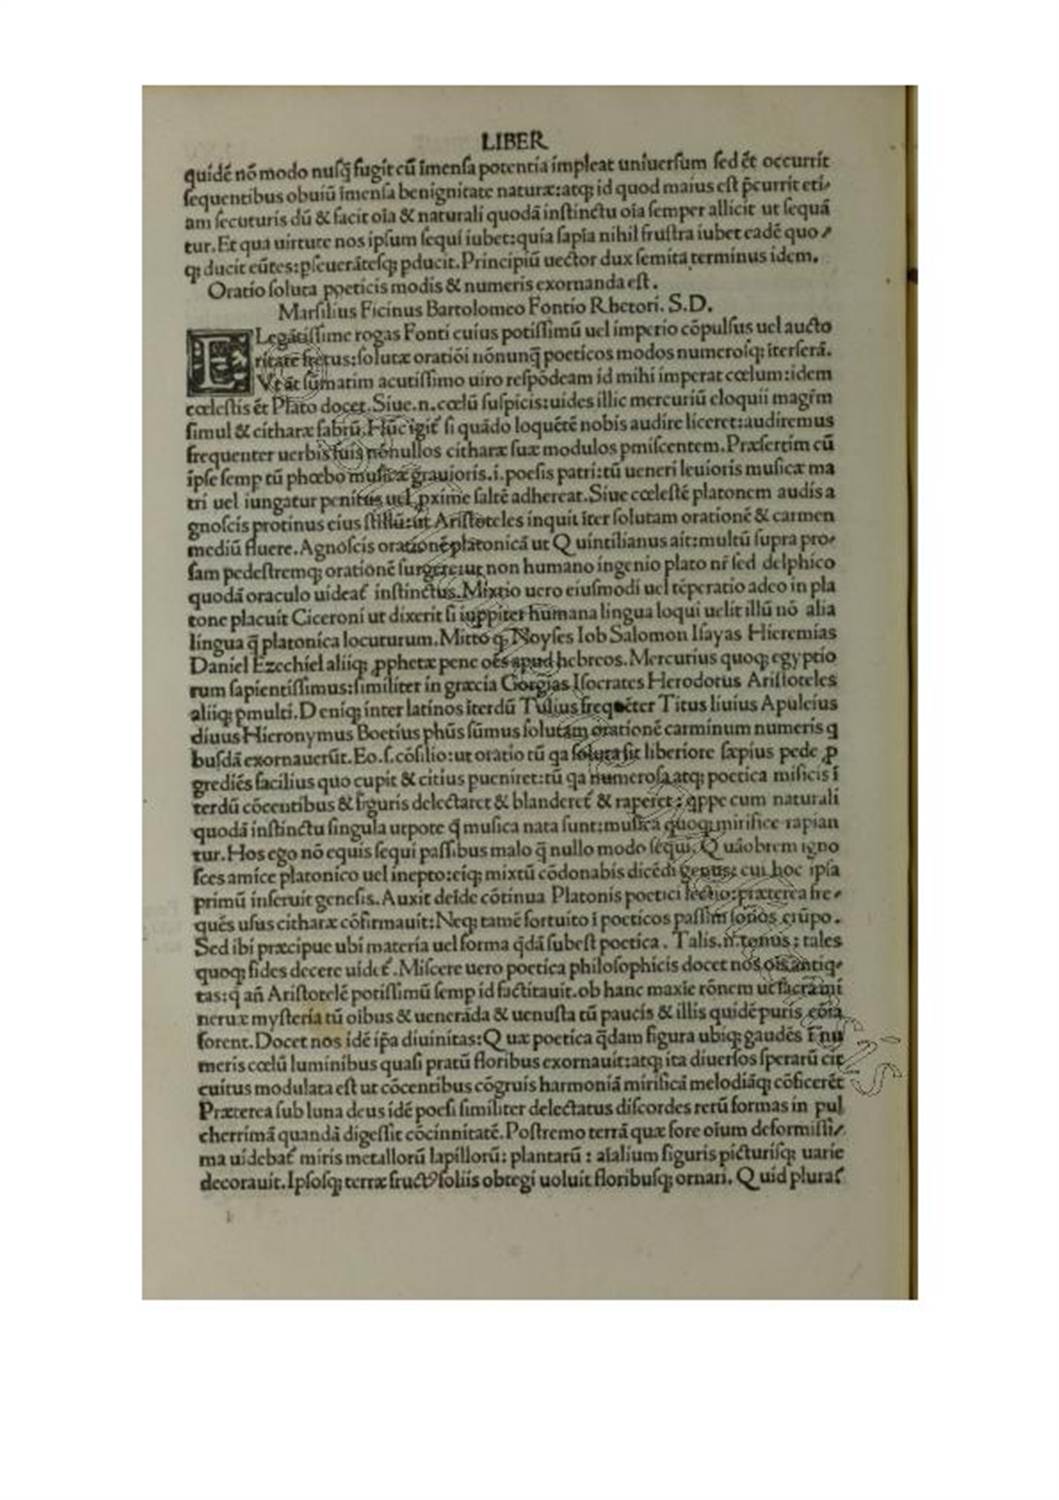 LIBER
quidē nō modo nusꝗ fugit cū īmensa potentia impleat uniuersum sed ēt occurrit
sequentibus obuiū īmensa benignitate naturæ: atq; id quod maius est p̄currit eti-
am secuturis dū & facit oīa & naturali quodā instinctu oīa semper allicit ut sequā
tur. Et qua uirtute nos ipsum sequi iubet: quia sapīa nihil frustra iubet eadē quo-
q; ducit eūtes: pseuerātesq; pducit. Principiū uector dux semita terminus idem.
Oratio soluta poeticis modis & numeris exornanda est.
Marsilius Ficinus Bartolomeo Fontio Rhetori. S.D.
ELegātissime rogas Fonti cuius potissimū uel imperio cōpulsus uel aucto
ritate fretus: solutæ oratiōi nōnunꝗ poeticos modos numerosq; īterserā.
Vt āt sūmatim acutissimo uiro respōdeam id mihi imperat cœlum: idem
cœlestis ēt Plato docet. Siue .n. cœlū suspicis: uides illic mercuriū eloquii magr̄m
simul & citharæ fabrū. Hūc igit̄ si quādo loquētē nobis audire liceret: audiremus
frequenter uerbis suis nōnullos citharæ suæ modulos pmiscentem. Præsertim cū
īpse semp tū phœbo musicæ grauioris .i. poesis patri: tū ueneri leuioris musicæ ma
tri uel iungatur penitus uel ꝓxime saltē adhereat. Siue cœlestē platonem audis a
gnoscis protinus eius stillū: ut Aristoteles inquit īter solutam orationē & carmen
mediū fluere. Agnoscis orationē platonicā ut Quintilianus ait: multū supra pro-
sam pedestremq; orationē surgere: ut non humano ingenio plato nr̄ sed delphico
quodā oraculo uideat̄ instinctus. Mixtio uero eiusmodi uel tēperatio adeo in pla
tone placuit Ciceroni ut dixerit si iuppiter humana lingua loqui uelit illū nō alia
lingua ꝗ platonica locuturum. Mitto q, Noyses Iob Salomon Isayas Hieremias
Daniel Ezechiel aliiq; ꝓphetæ pene oēs apud hebreos. Mercurius quoq; egyptio
rum sapientissimus: similiter in græcia Gorgias Isocrates Herodotus Aristoteles
aliiq; pmulti. Deniq; inter latinos īterdū Tulius frequēter Titus liuius Apuleius
diuus Hieronymus Boetius phūs sūmus solutam orationē carminum numeris q
busdā exornauerūt. Eo .s. cōsilio: ut oratio tū qa soluta sit liberiore sæpius pede ꝓ
grediēs facilius quo cupit & citius pueniret: tū qa numerosa atq; poetica misicis ī
terdū cōcentibus & figuris delectaret & blanderet̄ & raperet: qppe cum naturali
quodā instinctu singula utpote ꝗ musica nata sunt: musica quoq; mirifice rapian
tur. Hos ego nō equis sequi passibus malo ꝗ nullo modo sequi. Quāobrem igno
sces amice platonico uel inepto: eiq; mixtū cōdonabis dicēdi genus: cui hoc ipsa
primū inseruit genesis. Auxit deīde cōtinua Platonis poetici lectio: præterea fre-
quēs usus citharæ cōfirmauit: Neq; tamē fortuito ī poeticos passim sonos erūpo.
Sed ibi præcipue ubi materia uel forma qdā subest poetica. Talis .n. tonus: tales
quoq; fides decere uidet̄. Miscere uero poetica philosophicis docet nos oīs antiq-
tas: ꝗ añ Aristotelē potissimū semp id factitauit. ob hanc maxīe rōnem ut sacra mi
neruæ mysteria tū oībus & ueneráda & uenusta tū paucis & illis quidē puris cōīa
forent. Docet nos idē ip̄a diuinitas: Quæ poetica qdam figura ubiq; gaudēs ī nu
meris cœlū luminibus quasi pratū floribus exornauit: atq; ita diuersos sperarū cir
cuitus modulata est ut cōcentibus cōgruis harmoniā mirificā melodiāq; cōficerēt
Præterea sub luna deus idē poesi similiter delectatus discordes rerū formas in pul
cherrimā quandā digessit cōcinnitatē. Postremo terrā quæ fore oīum deformissi-
ma uidebat̄ miris metallorū lapillorū: plantarū: aīalium figuris picturisq; uarie
decorauit. Ipsosq; terræ fructꝰ foliis obtegi uoluit floribusq; ornari. Quid plura?